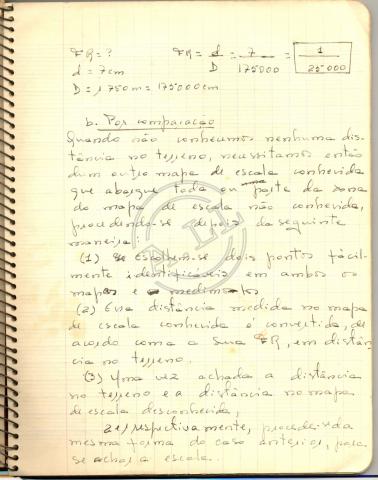 FR = ?   FR = d/D = 7/175000 = 1/25000
d = 7cm
D = 1750m = 175000cm
b. Por comparação
Quando não conhecemos nenhuma dis-
tância no terreno, necessitamos então
dum outro mapa de escala conhecida
que abarque toda ou parte da zona
do mapa de escala não conhecida,
procedendo-se depois da seguinte
maneira:
(1) Escolhem-se dois pontos fácil-
mente identificáveis em ambos os
mapas e medimos
(2) Essa distância medida no mapa
de escala conhecida é convertida, de
acordo com a sua FR, em distân
cia no terreno.
(3) Uma vez achada a distância
no terreno e a distância no mapa
de escala desconhecida,
respectivamente, procede-se da
mesma forma do caso anterior, para
se achar a escala.